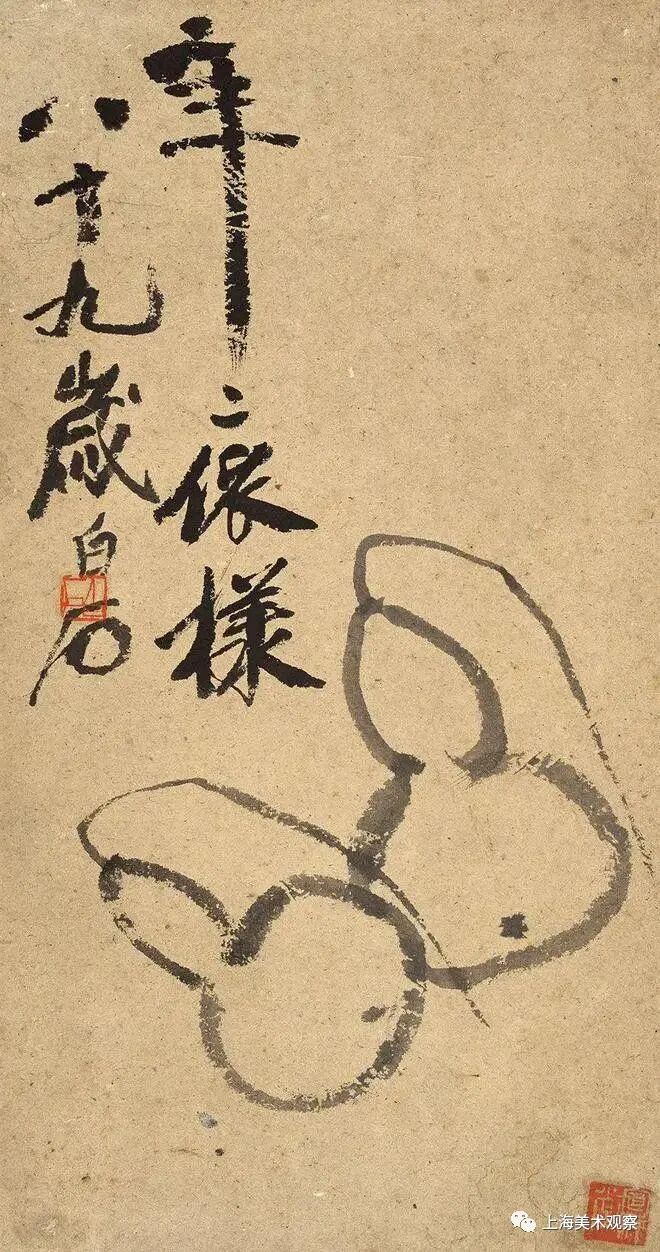 年〻依樣
八十九歲白石
上海美术观察